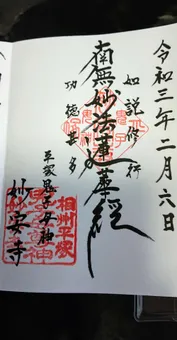 令和三年二月六日
如説修行
南無妙法蓮華經
功徳甚多
平塚鬼子母神
妙安寺
相州平塚